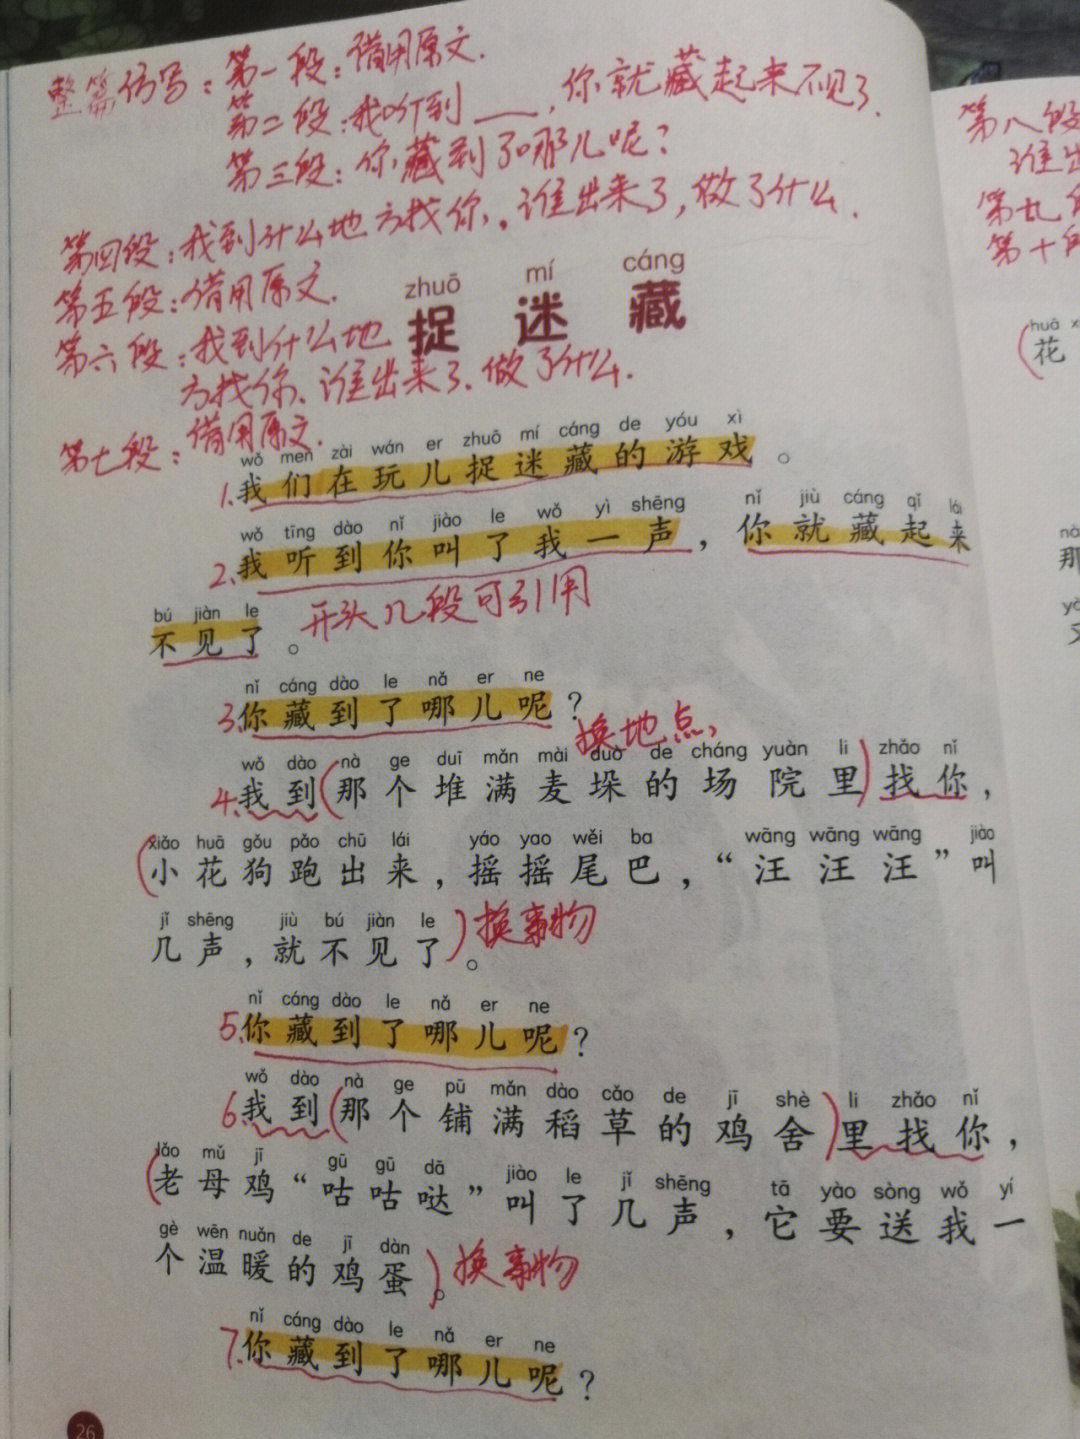 整篇仿写：第一段：借用原文.
第二段：我听到___，你就藏起来不见了.
第三段：你藏到了哪儿呢？
第四段：我到什么地方找你。谁出来了，做了什么.
第五段：借用原文.
第六段：我到什么地
方找你、谁出来了.做了什么.
第七段：借用原文.
zhuō mí cáng
捉迷藏
wǒ men zài wán er zhuō mí cáng de yóu xì
1.我们在玩儿捉迷藏的游戏。
wǒ tīng dào nǐ jiào le wǒ yì shēng nǐ jiù cáng qǐ lái
2.我听到你叫了我一声，你就藏起来
bú jiàn le
不见了。开头几段可引用
nǐ cáng dào le nǎ er ne
3.你藏到了哪儿呢？
换地点,
wǒ dào nà ge duī mǎn mài duò de cháng yuàn li zhǎo nǐ
4.我到(那个堆满麦垛的场院里)找你，
xiǎo huā gǒu pǎo chū lái yáo yao wěi ba wāng wāng wāng jiào
(小花狗跑出来，摇摇尾巴，“汪汪汪”叫
jǐ shēng jiù bú jiàn le
几声，就不见了)。换事物
nǐ cáng dào le nǎ er ne
5.你藏到了哪儿呢？
wǒ dào nà ge pū mǎn dào cǎo de jī shè li zhǎo nǐ
6.我到(那个铺满稻草的鸡舍)里找你，
lǎo mǔ jī gū gū dā jiào le jǐ shēng tā yào sòng wǒ yí
(老母鸡“咕咕哒”叫了几声，它要送我一
gè wēn nuǎn de jī dàn
个温暖的鸡蛋)。换事物
nǐ cáng dào le nǎ er ne
7.你藏到了哪儿呢？
26
第八段
谁出
第九
第十
huā
(花
nà
那